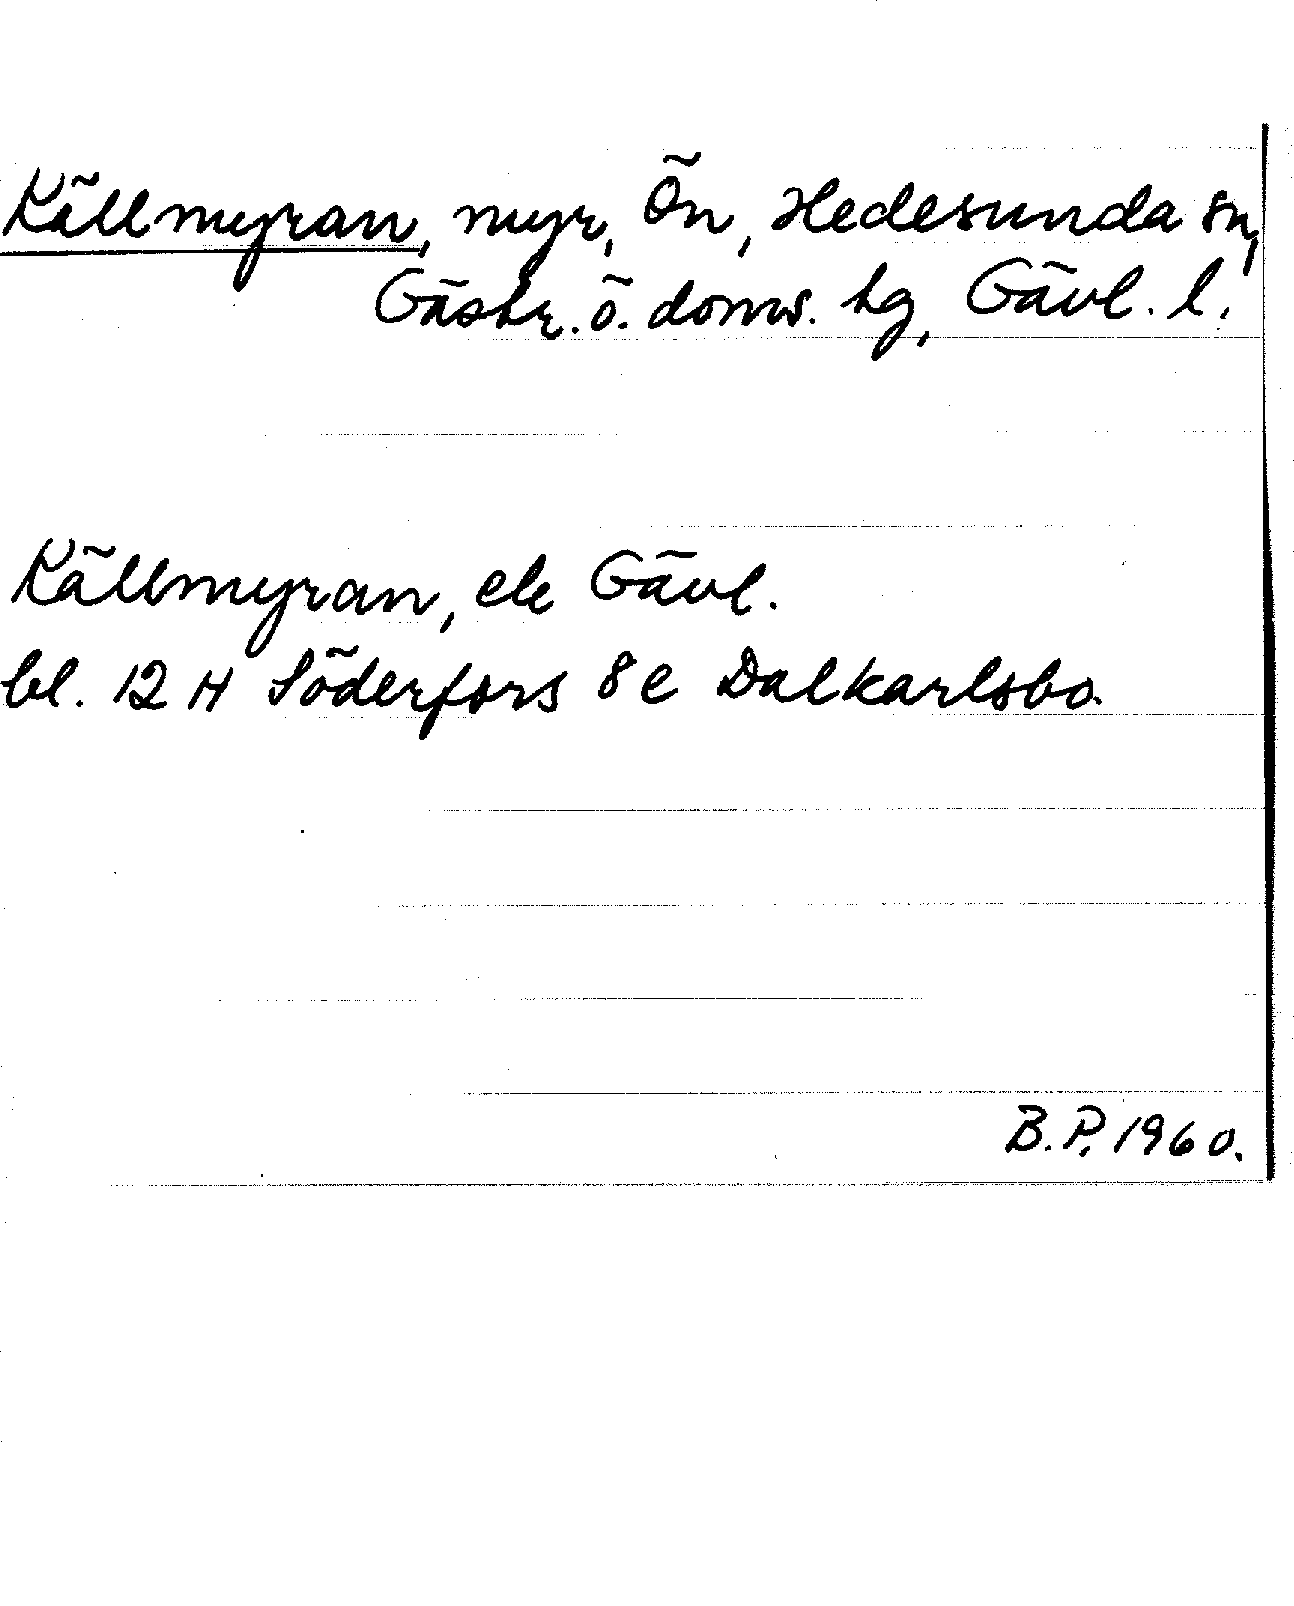 Källmyran, myr, Ön, Hedesunda sn,
Gästr. ö. doms. hg, Gävl. l.
Källmyran, ek Gävl.
bl. 12 H Söderfors 8 e Dalkarlsbo.
B.P. 1960.